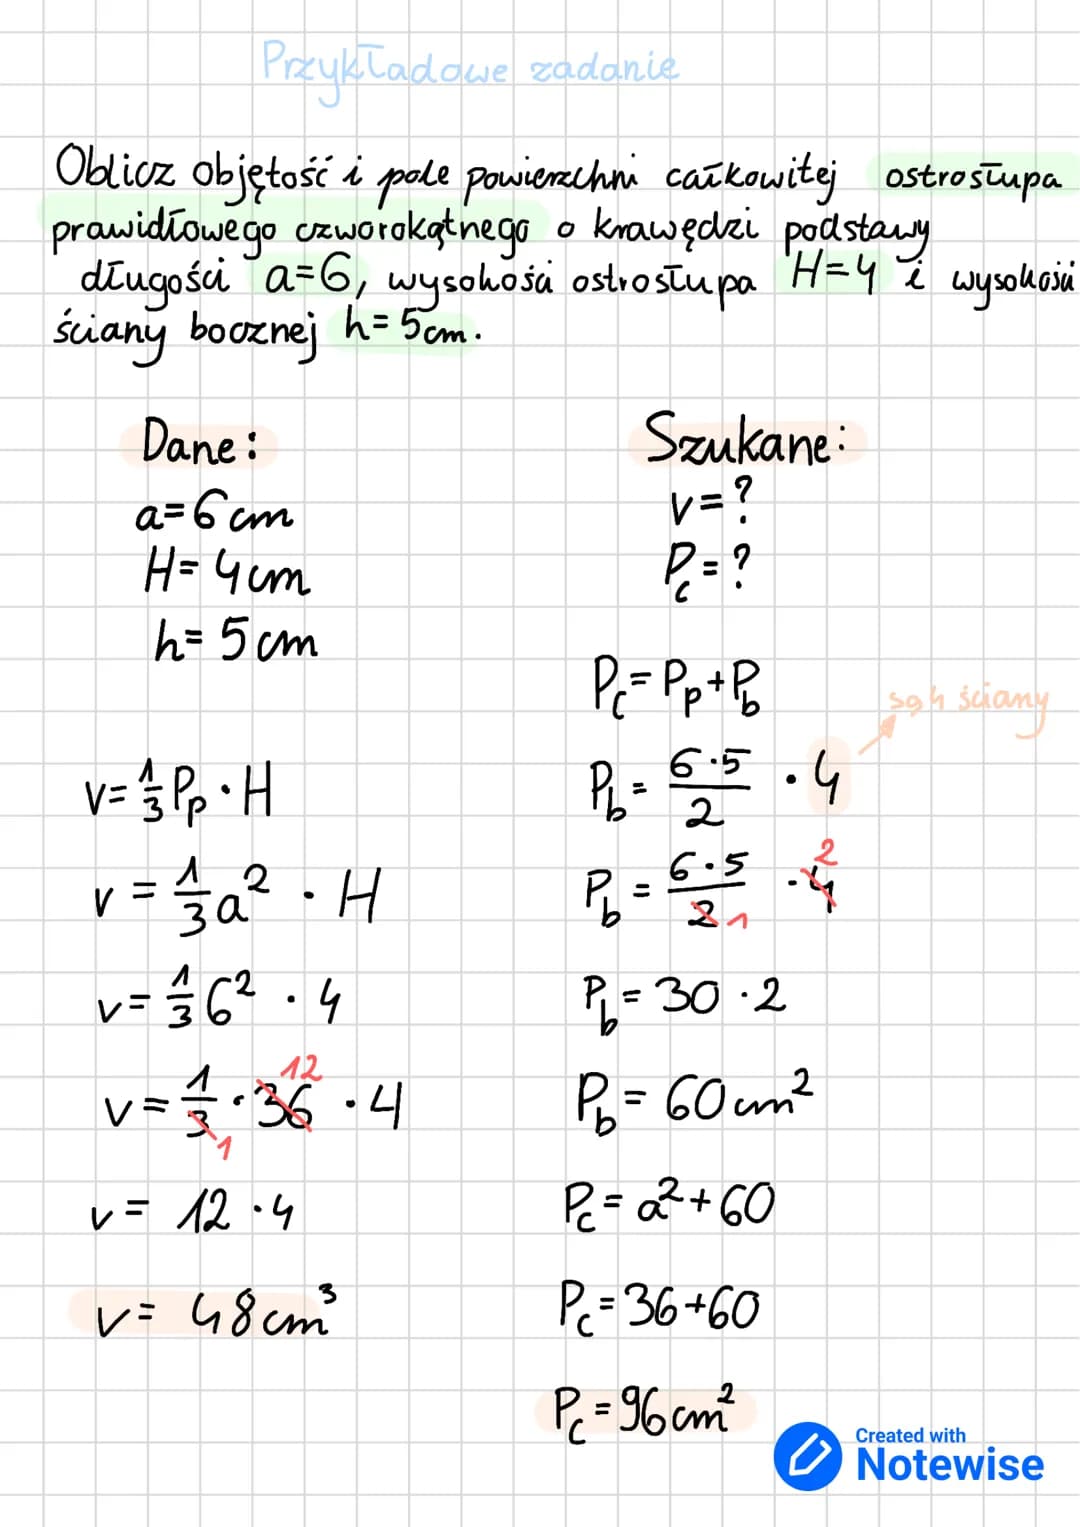 Przykładowe zadanie
Oblicz objętość i pole powierzchni całkowitej ostrosłupa
prawidłowego czworokątnego o krawędzi podstawy
długości a=6, wysokości ostrosłupa H=4 i wysokości
ściany bocznej h=5cm.
Dane:
a=6cm
H=4cm
h=5cm
Szukane:
v=?
Pc=?
v=1/3 Pp·H
v=1/3 a²·H
v=1/3 6²·4
v=1/3·36·4
12
1
v=12·4
v=48cm³
Pc=Pp+Pb
są 4 ściany
Pb=6·5/2·4
Pb=6·5/2·4
2
1
Pb=30·2
Pb=60cm²
Pc=a²+60
Pc=36+60
Pc=96cm²
Created with
Notewise